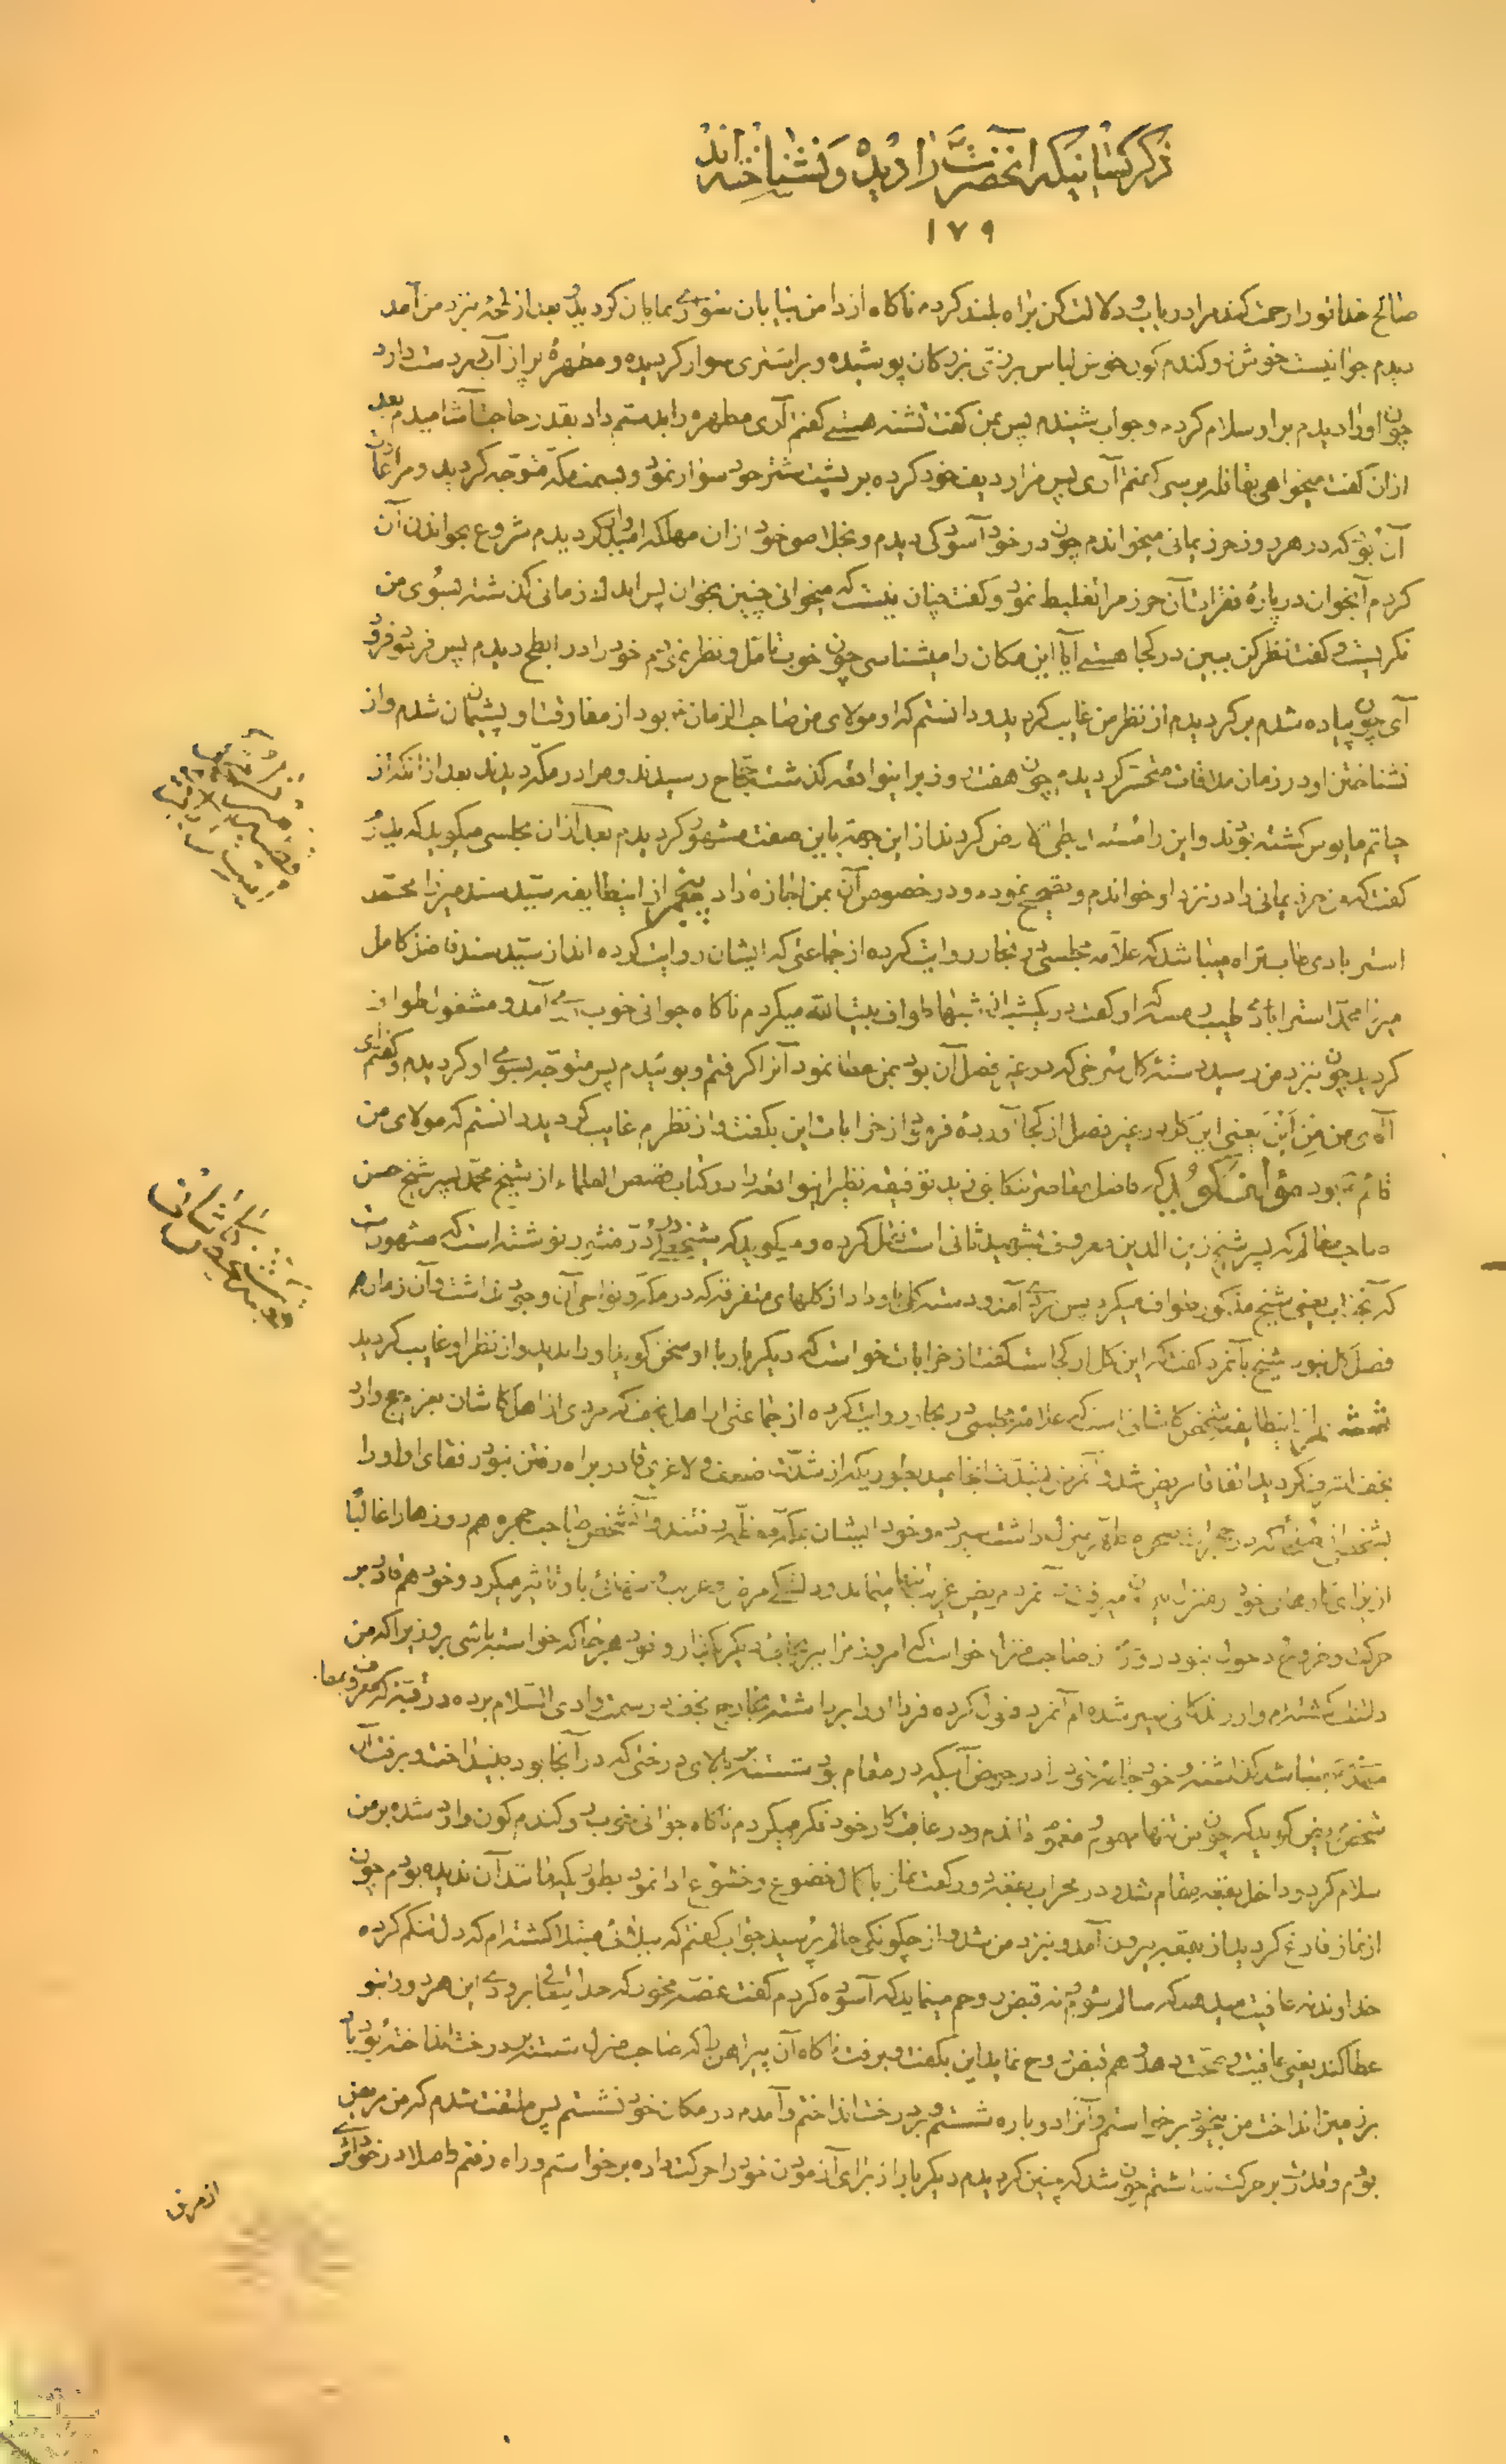 ذکر کسانیکه آنحضرت را دیده و نشناخته اند
۱۷۹
صالح خدا تو را رحمت کند مرا دریاب و دلالت کن براه بلند کردم ناکاه از دامن بیابان سواری نمایان کردید بعد از لحظه نزد من آمد
دیدم جوانیست خوش رو کندم کون خوش لباس برزی بزرکان پوشیده و بر اشتری سوار کردیده و مطهرهٔ پر از آب در دست دارد
چون او را دیدم بر او سلام کردم و جواب شنیدم پس بمن کفت تشنه هستی کفتم آری مطهره را بدستم داد بقدر حاجت آشامیدم بعد
از آن کفت میخواهی بقافله برسی کفتم آری پس مرا ردیف خود کرده بر پشت شتر خود سوار نمود و بسمت مکه متوجه کردید و مرا عادت
آن بود که در هر روز حرز یمانی میخواندم چون در خود آسودکی دیدم و بخلاصی خود از آن مهلکه امیدوار کردیدم شروع بخواندن آن
کردم آنجوان در پارهٔ فقرات آن حرز مرا تغلیط نمود و کفت چنان نیست که میخوانی چنین بخوان پس اندک زمانی کذشته بسوی من
نکریست و کفت نظر کن ببین در کجا هستی آیا این مکان را میشناسی چون خوب تامل و نظر نمودم خود را در ابطح دیدم پس فرمود فرود
آی چون پیاده شدم بر کردیدم از نظر من غایب کردید و دانستم که او مولای من صاحب الزمان بود از مفارقت او پشیمان شدم و از
نشناختن او در زمان ملاقات متحسر کردیدم چون هفت روز بر اینواقعه کذشت حجاج رسیدند و مرا در مکه دیدند بعد از آنکه از
حیاتم مایوس کشته بودند و این را مستند بطی الارض کردند از این جهة باین صفت مشهور کردیدم بعد از آن مجلسی میکوید که پدرم
کفت که من حرز یمانی را در نزد او خواندم و تصحیح نمودم و در خصوص آن بمن اجازه داد پنجم از اینطایفه سید سند میرزا محمد
استرابادی صاحب رجال میباشد که علامه مجلسی در بحار روایت کرده از جماعتی که ایشان روایت کرده اند از سید سند فاضل کامل
میرزا محمد استرابادی طیب رمسه که او کفت در یکشبی از شبها طواف بیت الله میکردم ناکاه جوانی خوب روی آمد و مشغول طواف
کردید چون نزد من رسید دسته کل سرخی که در غیر فصل آن بود بمن عطا نمود آنرا کرفتم و بوئیدم پس متوجه بسوی او کردیدم و کفتم ای
آقای من من این یعنی این کل در غیر فصل از کجا آورده فرمود از خرابات این بکفت و از نظرم غایب کردید دانستم که مولای من
قائم بود مؤلف کوید که فاضل معاصر تنکابنی زید توفیقه نظیر اینواقعه را در کتاب قصص العلماء از شیخ محمد پسر شیخ حسن
صاحب معالم که پسر شیخ زین الدین معروف بشهید ثانی است نقل کرده و میکوید که شیخ علی در در منثور نوشته است که مشهور است
که آنجناب یعنی شیخ مذکور طواف میکرد پس مردی آمد و دسته کلی باو داد از کلهای متفرقه که در مکه و نواحی آن وجود نداشت و آن زمان هم
فصل کل نبود شیخ بآنمرد کفت که این کل از کجاست کفت از خرابات خواست که دیکر بار با او سخن کوید او را ندید و از نظر او غایب کردید
ششم از اینطایفه شخص کاشانی است که علامه مجلسی در بحار روایت کرده از جماعتی از اهل نجف که مردی از اهل کاشان بعزم حج وارد
نجف اشرف کردید اتفاقا مریض شد و آنمرض بشدت انجامید بطوریکه از شدت ضعف و لاغری قادر براه رفتن نبود رفقای او او را
بشخصی از صلحا که در حجرات صحن مطهر منزل داشت سپردند و خود ایشان بمکه معظمه رفتند و آن شخص صاحب حجره هم روزها را غالبا
از برای کارهای خود از منزل بیرون میرفت و آنمرد مریض غریب تنها میماند و دلتنکی مرض و غربت و تنهائی باو تاثیر میکرد و خود هم قادر بر
حرکت و خروج و دخول نبود روزی از صاحب منزل خواست که امروز مرا ببر بجای دیکر بکذار و خود هر جا که خواسته باشی برو زیرا که من
دلتنک کشته‌ام و از زندکانی سیر شده ام آنمرد قبول کرده فردا او را برداشته بخارج نجف در سمت وادی السلام برده در بقعه که معروف بمقام
مهدی میباشد کذاشته و خود جامه خود را در حوض آبیکه در مقام بود شسته بر بالای درختی که در آنجا بود بینداخت و برفت آن
شخص مریض کوید که چون من تنها مهموم و مغموم ماندم و در عاقبت کار خود فکر میکردم ناکاه جوانی خوب رو کندم کون وارد شده بر من
سلام کرد و داخل بقعه مقام شد و در محراب بقعه دو رکعت نماز با کمال خضوع و خشوع ادا نمود بطوریکه مانند آن ندیده بودم چون
از نماز فارغ کردید از بقعه بیرون آمد و نزد من شد و از چکونکی حالم پرسید جواب کفتم که ببلائی مبتلا کشته ام که دلتنکم کرده
خداوند نه عافیت میدهد که سالم شوم نه قبض روحم مینماید که آسوده کردم کفت غصه مخور که خدای تعالی بزودی این هر دو را بتو
عطا کند یعنی عافیت و صحت دهد و هم قبض روح نماید این بکفت و برفت ناکاه آن پیراهن را که صاحب منزل شسته بر درخت انداخته بود باد
بر زمین انداخت من بیخود برخواستم و آنرا دوباره شستم و بر درخت انداختم و آمدم در مکان خود نشستم پس ملتفت شدم که من مریض
بودم و قدرت بر حرکت نداشتم چون شد که چنین کردیدم دیکر بار از برای آزمودن خود را حرکت داده برخواستم و راه رفتم و اصلا در خود اثری
از مرض